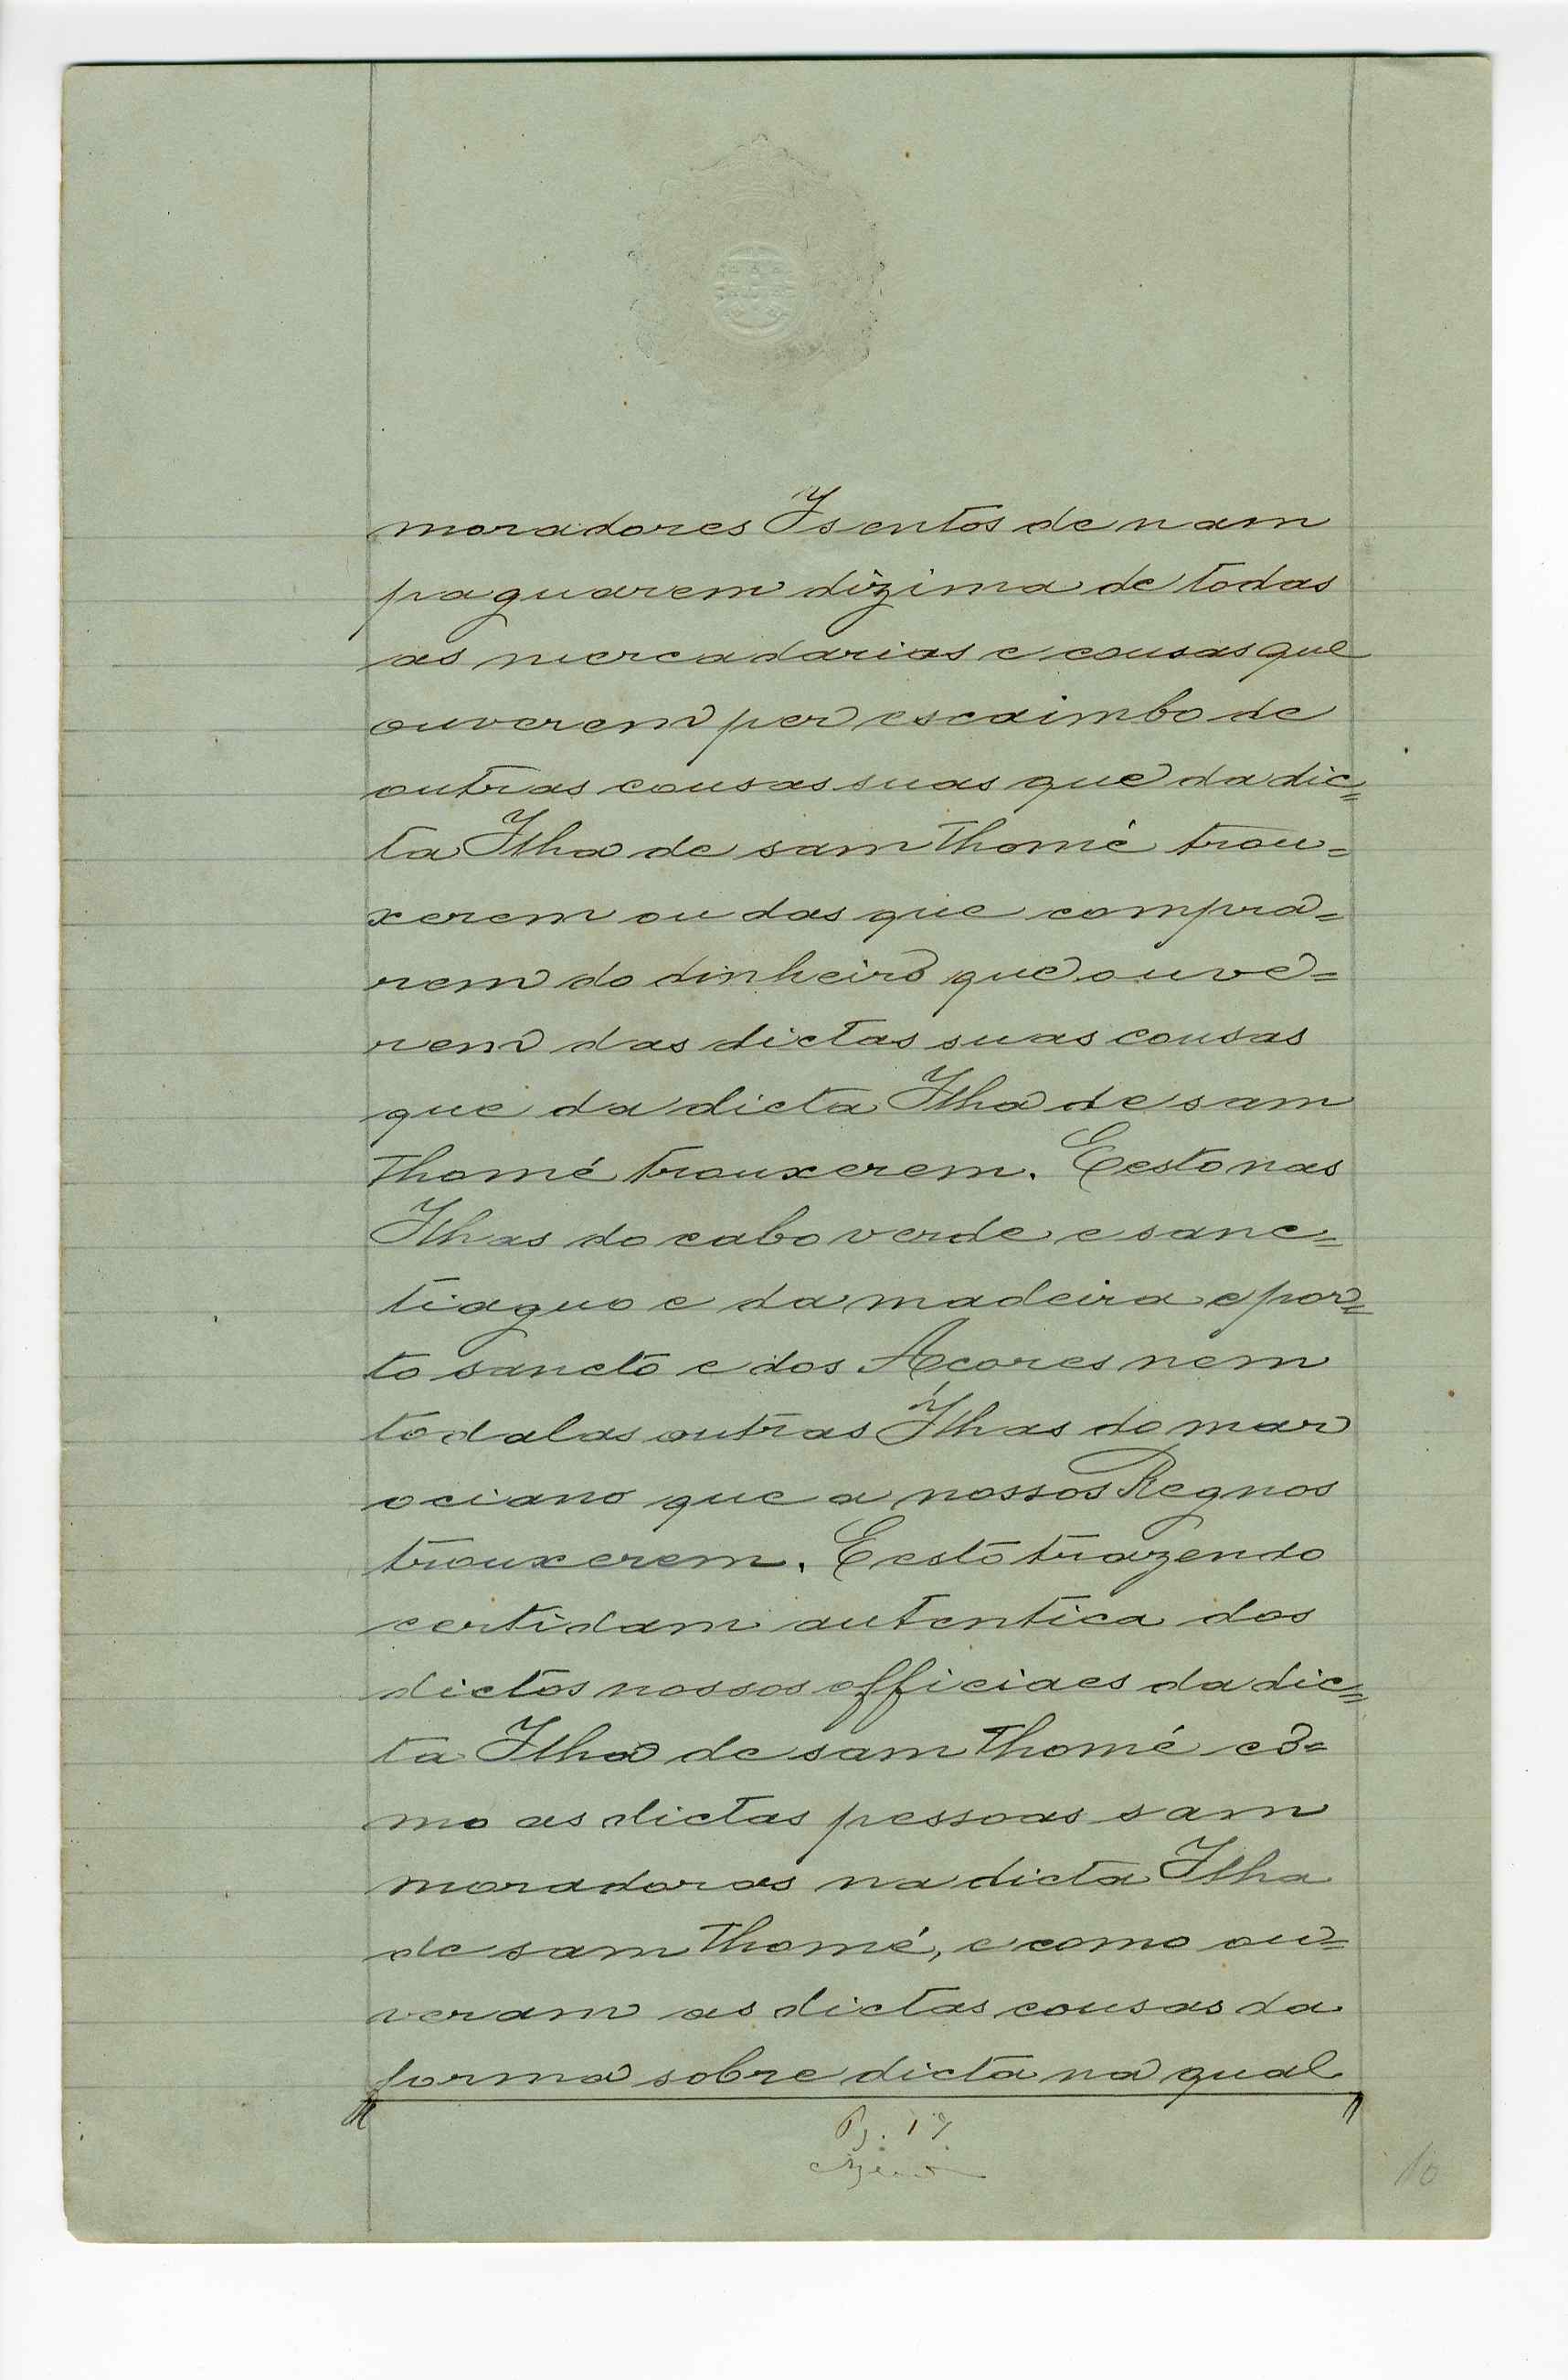 moradores Isentos de nam
paguarem dizima de todas
as mercadarias e cousas que
ouverem per escaimbo de
outras cousas suas que da dic=
ta Ilha de sam Thomé trou=
xerem ou das que compra=
rem do dinheiro que ouve=
rem das dictas suas cousas
que da dicta Ilha de sam
Thomé trouxerem. E esto nas
Ilhas do cabo verde e sanc=
tiaguo e da madeira e por=
to sancto e dos Açores nem
todalas outras Ilhas do mar
ociano que a nossos Regnos
trouxerem. E esto trazendo
certidam autentica dos
dictos nossos officiaes da dic=
ta Ilha de sam Thomé co=
mo as dictas pessoas sam
moradoras na dicta Ilha
de sam Thomé, e como ou=
veram as dictas cousas da
forma sobre dicta na qual
10